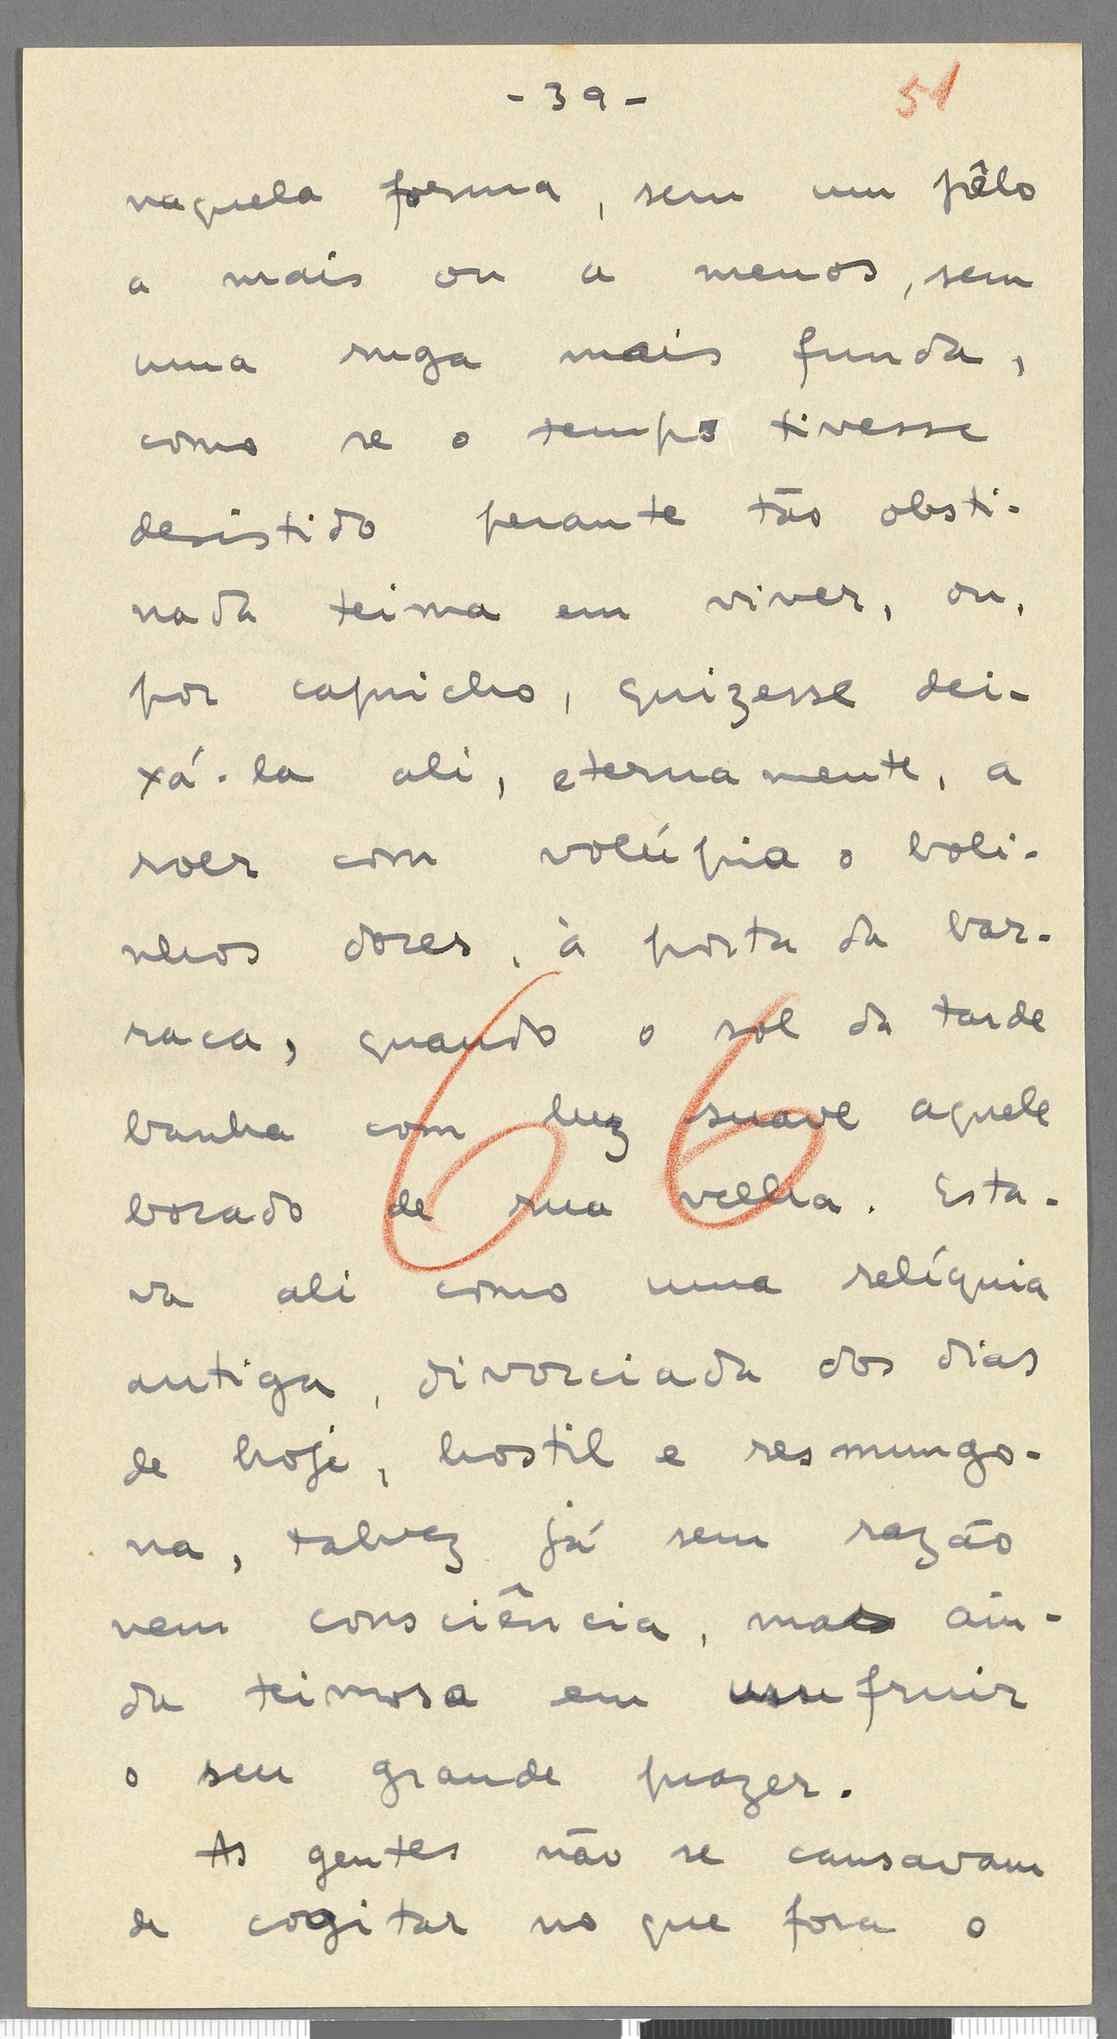 - 39 -
51
naquela forma, sem um pêlo
a mais ou a menos, sem
uma ruga mais funda,
como se o tempo tivesse
desistido perante tão obsti-
nada teima em viver, ou,
por capricho, quizesse dei-
xá-la ali, eternamente, a
roer com volúpia o boli-
nhos doces, à porta da bar-
raca, quando o sol da tarde
banha com luz suave aquele
bocado de rua velha. Esta-
va ali como uma relíquia
antiga, divorciada dos dias
de hoje, hostil e resmungo-
na, talvez já sem razão
nem consciência, mas ain-
da teimosa em usufruir
o seu grande prazer.
As gentes não se cansavam
de cogitar no que fora o
66